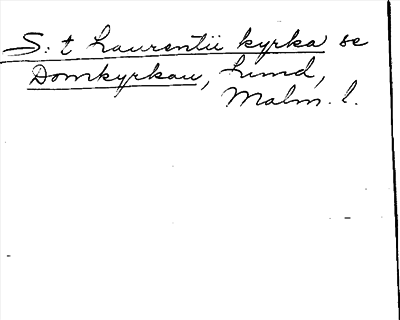 S:t Laurentii kyrka se
Domkyrkan, Lund,
Malm. l.